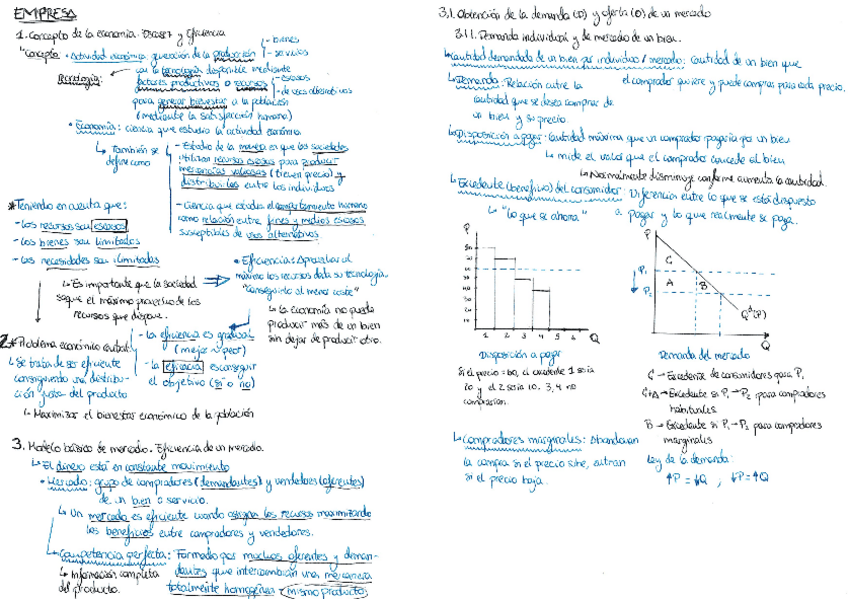 EMPRESA
1. Concepto de la economía. Escasez y Eficiencia
*Concepto: • Actividad económica: generación de la producción
- bienes
- servicios
Tecnología:
con la tecnología disponible mediante
factores productivos o recursos
- escasos
- de usos alternativos
para generar bienestar a la población
(mediante la satisfacción humana)
• Economía: ciencia que estudia la actividad económica
↳ También se define como
- Estudio de la manera en que las sociedades
utilizan recursos escasos para producir
mercancías valiosas (tienen precio) y
distribuirlas entre los individuos
- Ciencia que estudia el comportamiento humano
como relación entre fines y medios escasos
susceptibles de usos alternativos
* Teniendo en cuenta que:
- los recursos son escasos
- los bienes son limitados
- las necesidades son ilimitadas
↳ Es importante que la sociedad
saque el máximo provecho de los
recursos que dispone.
• Eficiencia: Aprovechar al
máximo los recursos dada su tecnología
"conseguirlo al menor coste"
↳ la economía no puede
producir más de un bien
sin dejar de producir otro.
2.* Problema económico central:
↳ Se trata de ser eficiente
consiguiendo una distribu-
ción justa del producto
- la eficiencia es gradual
(mejor y peor)
- la eficacia es conseguir
el objetivo (sí o no)
↳ Maximizar el bienestar económico de la población
3. Modelo básico de mercado. Eficiencia de un mercado.
↳ El dinero está en constante movimiento
• Mercado: grupo de compradores (demandantes) y vendedores (oferentes)
de un bien o servicio.
↳ Un mercado es eficiente cuando asigna los recursos maximizando
los beneficios entre compradores y vendedores.
↳ Competencia perfecta: Formado por muchos oferentes y deman-
dantes que intercambian una mercancía
totalmente homogénea = mismo producto
↳ Información completa
del producto.
3.1. Obtención de la demanda (D) y oferta (O) de un mercado
3.1.1. Demanda individual y de mercado de un bien.
↳ Cantidad demandada de un bien por individuo / mercado: Cantidad de un bien que
el comprador quiere y puede comprar para cada precio.
↳ Demanda: Relación entre la
cantidad que se desea comprar de
un bien y su precio.
↳ Disposición a pagar: Cantidad máxima que un comprador pagaría por un bien
↳ mide el valor que el comprador concede al bien
↳ Normalmente disminuye conforme aumenta la cantidad.
↳ Excedente (beneficio) del consumidor: Diferencia entre lo que se está dispuesto
a pagar y lo que realmente se paga.
↳ "lo que se ahorra"
P
1 2 3 4 5 6 Q
Disposición a pagar
P
P₁
P₂
C
A
B
Q
Demanda del mercado
C → Excedente de consumidores para P₁
C+A → Excedente si P₁→P₂ para compradores
habituales
B → Excedente si P₁→P₂ para compradores
marginales
↳ Compradores marginales: Abandonan
la compra si el precio sube, entran
si el precio baja.
Ley de la demanda:
↑P = ↓Q , ↓P = ↑Q